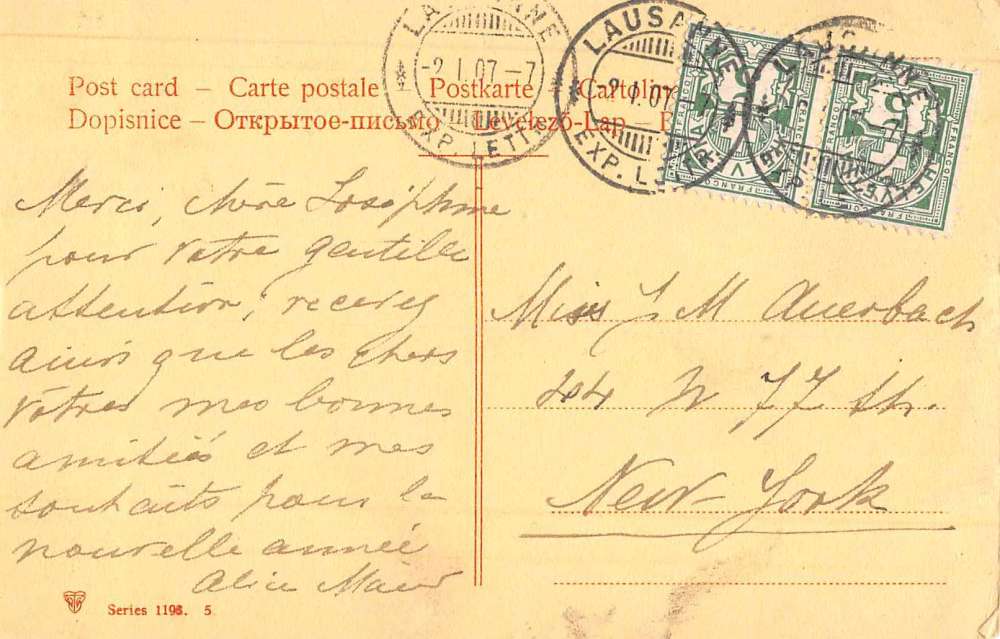 LAUSANNE
-2.I.07.-7
EXP. LETTR.
LAUSANNE
-2.I.07.-
EXP. L
LAUSANNE
HELVETIA
FRANCO
Post card – Carte postale – Postkarte – Cartolin
Dopisnice – Открытое-письмо – Levelező-Lap –
Merci, chère Joséphine
pour votre gentille
attention; recevez
ainsi que les chers
vôtres mes bonnes
amitiés et mes
souhaits pour la
nouvelle année
Alice
Miss J M Auerbach
44 W 77 th.
New-York
Series 1198. 5